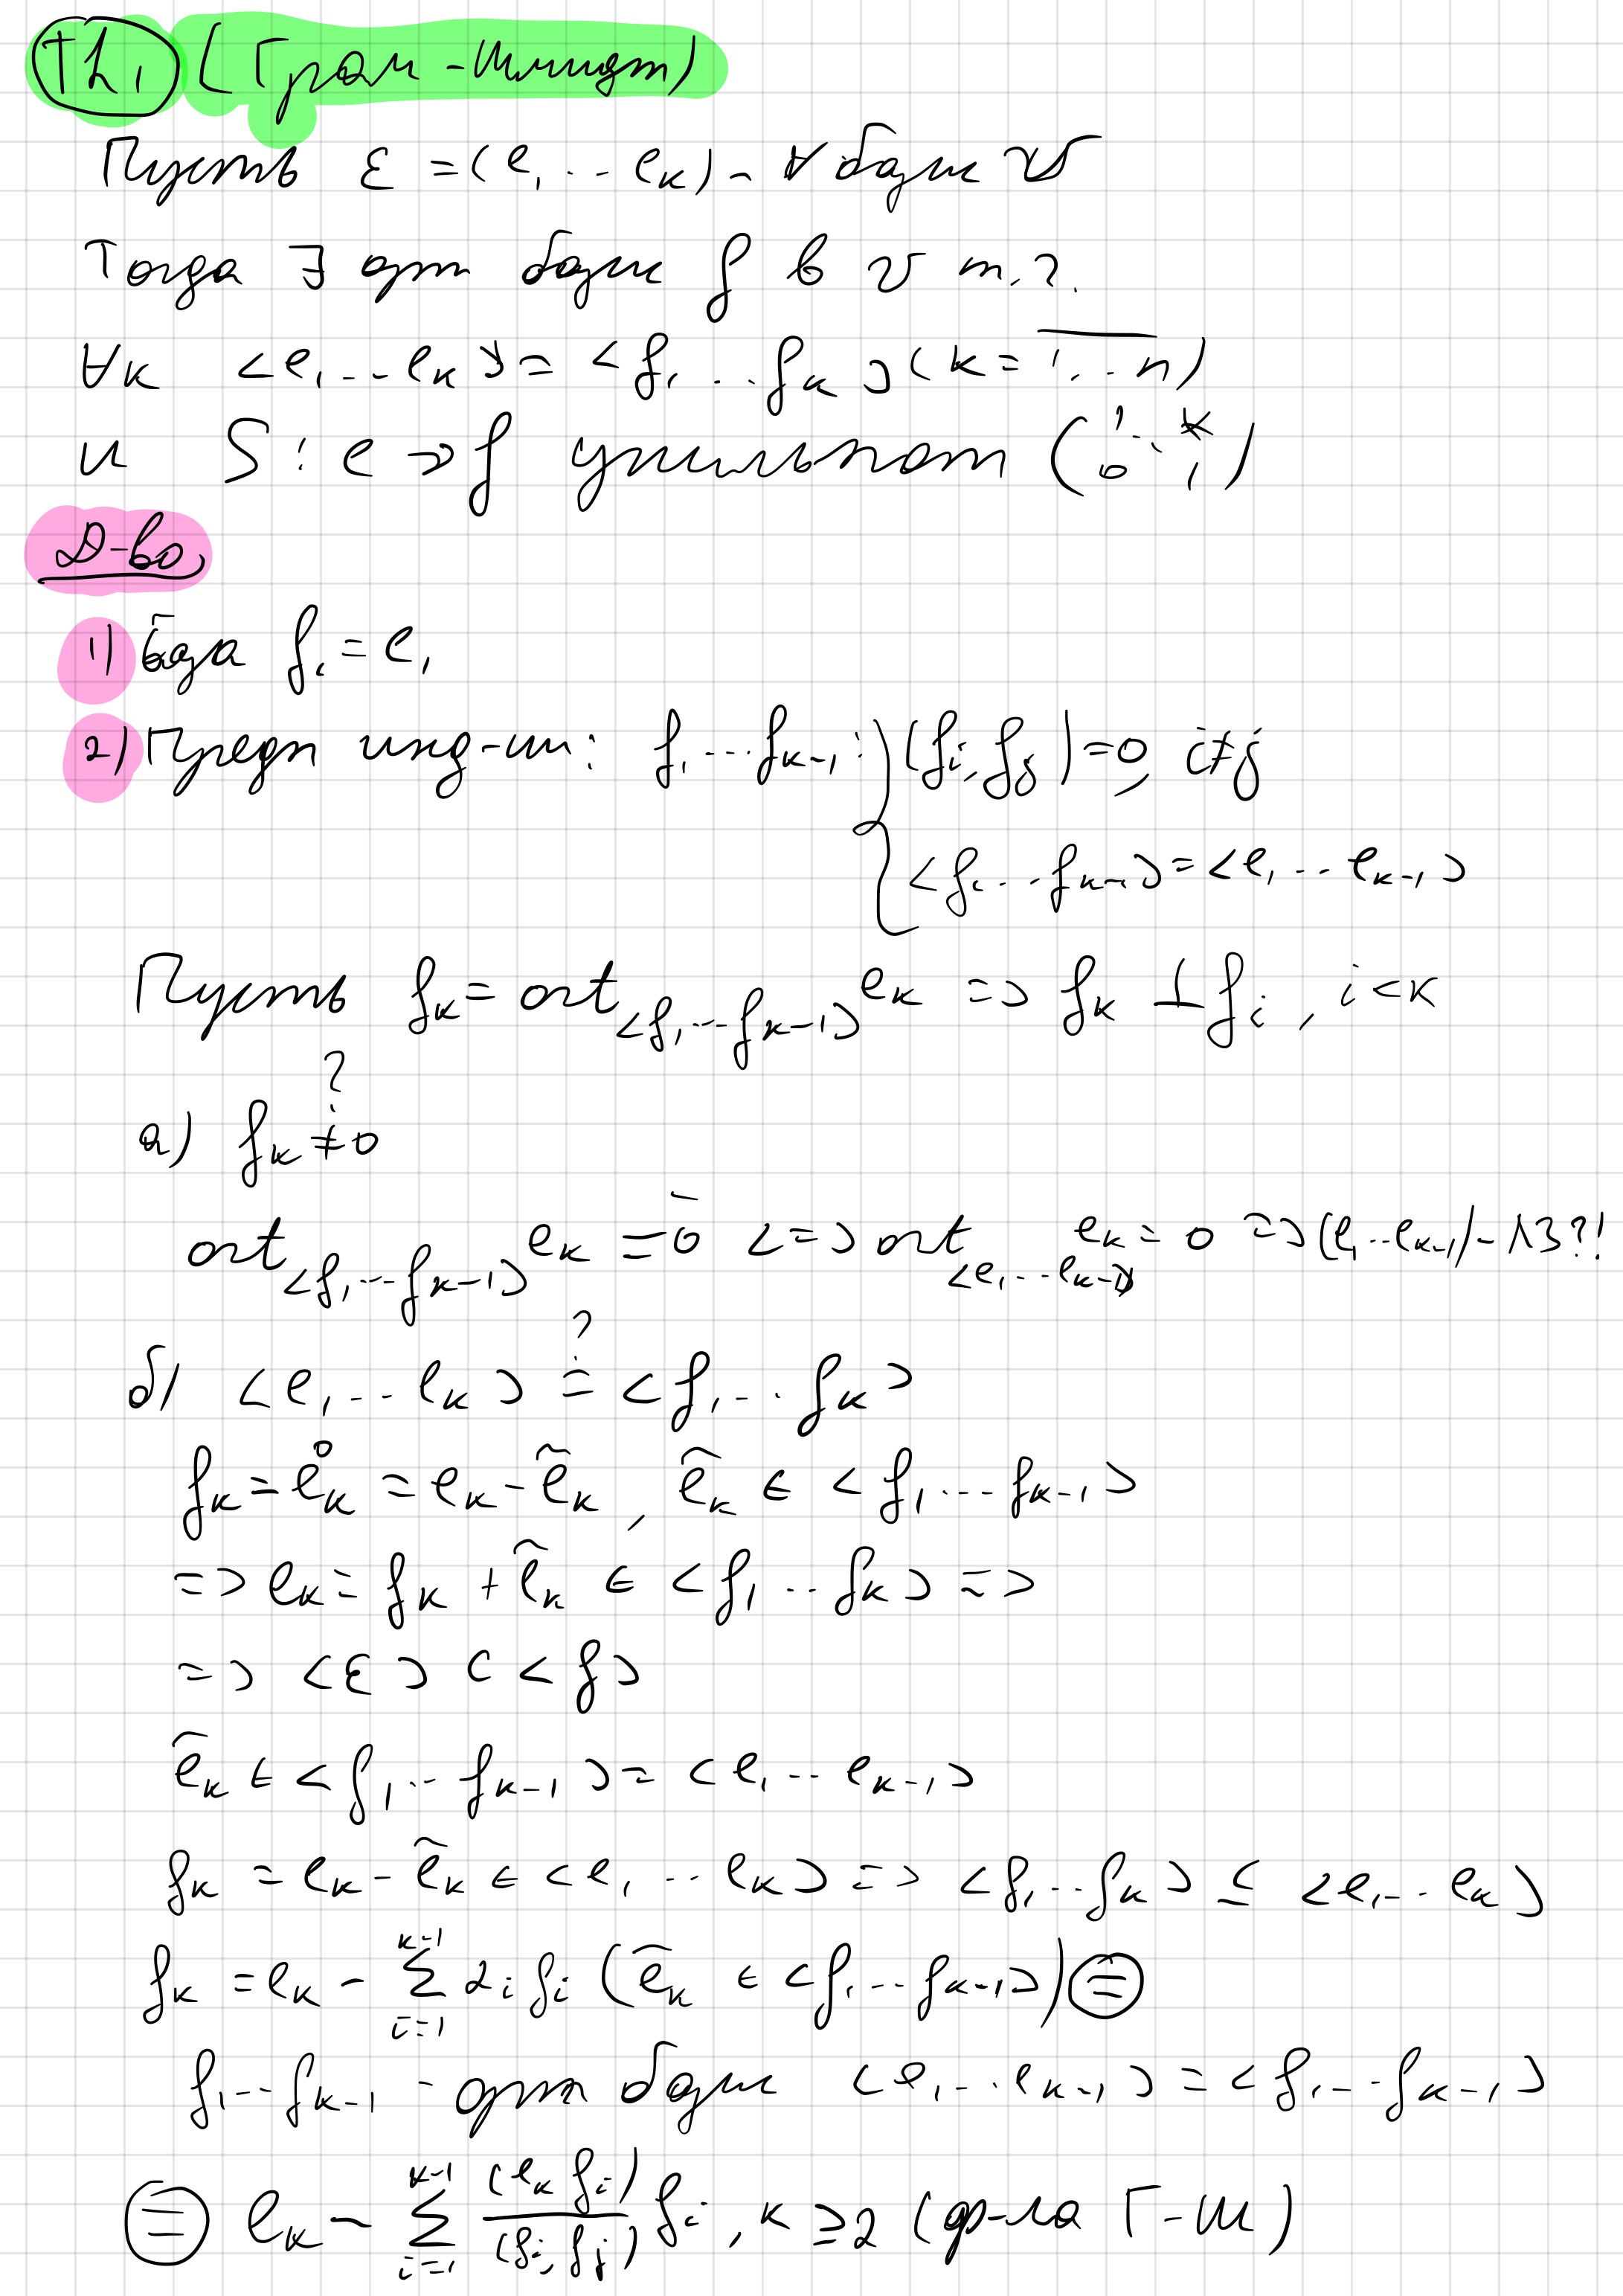 Th. (Грам-Шмидт)
Пусть ε = (e₁ ... eₖ) - ∀ базис V
Тогда ∃ орт базис f в V т.ч.
∀k <e₁ ... eₖ> = <f₁ ... fₖ> (k = 1, .. n)
и S : e → f унитреуг (1 ⋱ * 0 1)
Д-во
1) База f₁ = e₁
2) Предп инд-ии: f₁ ... fₖ₋₁ : { (fᵢ, fⱼ) = 0, i ≠ j
<f₁ ... fₖ₋₁> = <e₁ ... eₖ₋₁>
Пусть fₖ = ort_<f₁ ... fₖ₋₁> eₖ => fₖ ⊥ fᵢ , i < k
?
а) fₖ ≠ 0
ort_<f₁ ... fₖ₋₁> eₖ = 0 <=> ort_<e₁ ... eₖ₋₁> eₖ = 0 => (e₁ ... eₖ₋₁) - ЛЗ ?!
?
б) <e₁ ... eₖ> = <f₁ ... fₖ>
fₖ = e̊ₖ = eₖ - ẽₖ , ẽₖ ∈ <f₁ ... fₖ₋₁>
=> eₖ = fₖ + ẽₖ ∈ <f₁ .. fₖ> =>
=> <ε> ⊂ <f>
ẽₖ ∈ <f₁ ... fₖ₋₁> = <e₁ ... eₖ₋₁>
fₖ = eₖ - ẽₖ ∈ <e₁ ... eₖ> => <f₁ .. fₖ> ⊆ <e₁ ... eₖ>
fₖ = eₖ - Σᵢ₌₁ᵏ⁻¹ αᵢ fᵢ (ẽₖ ∈ <f₁ ... fₖ₋₁>) ⊜
f₁ ... fₖ₋₁ - орт базис <e₁ ... eₖ₋₁> = <f₁ ... fₖ₋₁>
⊜ eₖ - Σᵢ₌₁ᵏ⁻¹ (eₖ fᵢ)/(fᵢ, fⱼ) fᵢ , k ≥ 2 (ф-ла Г-Ш)